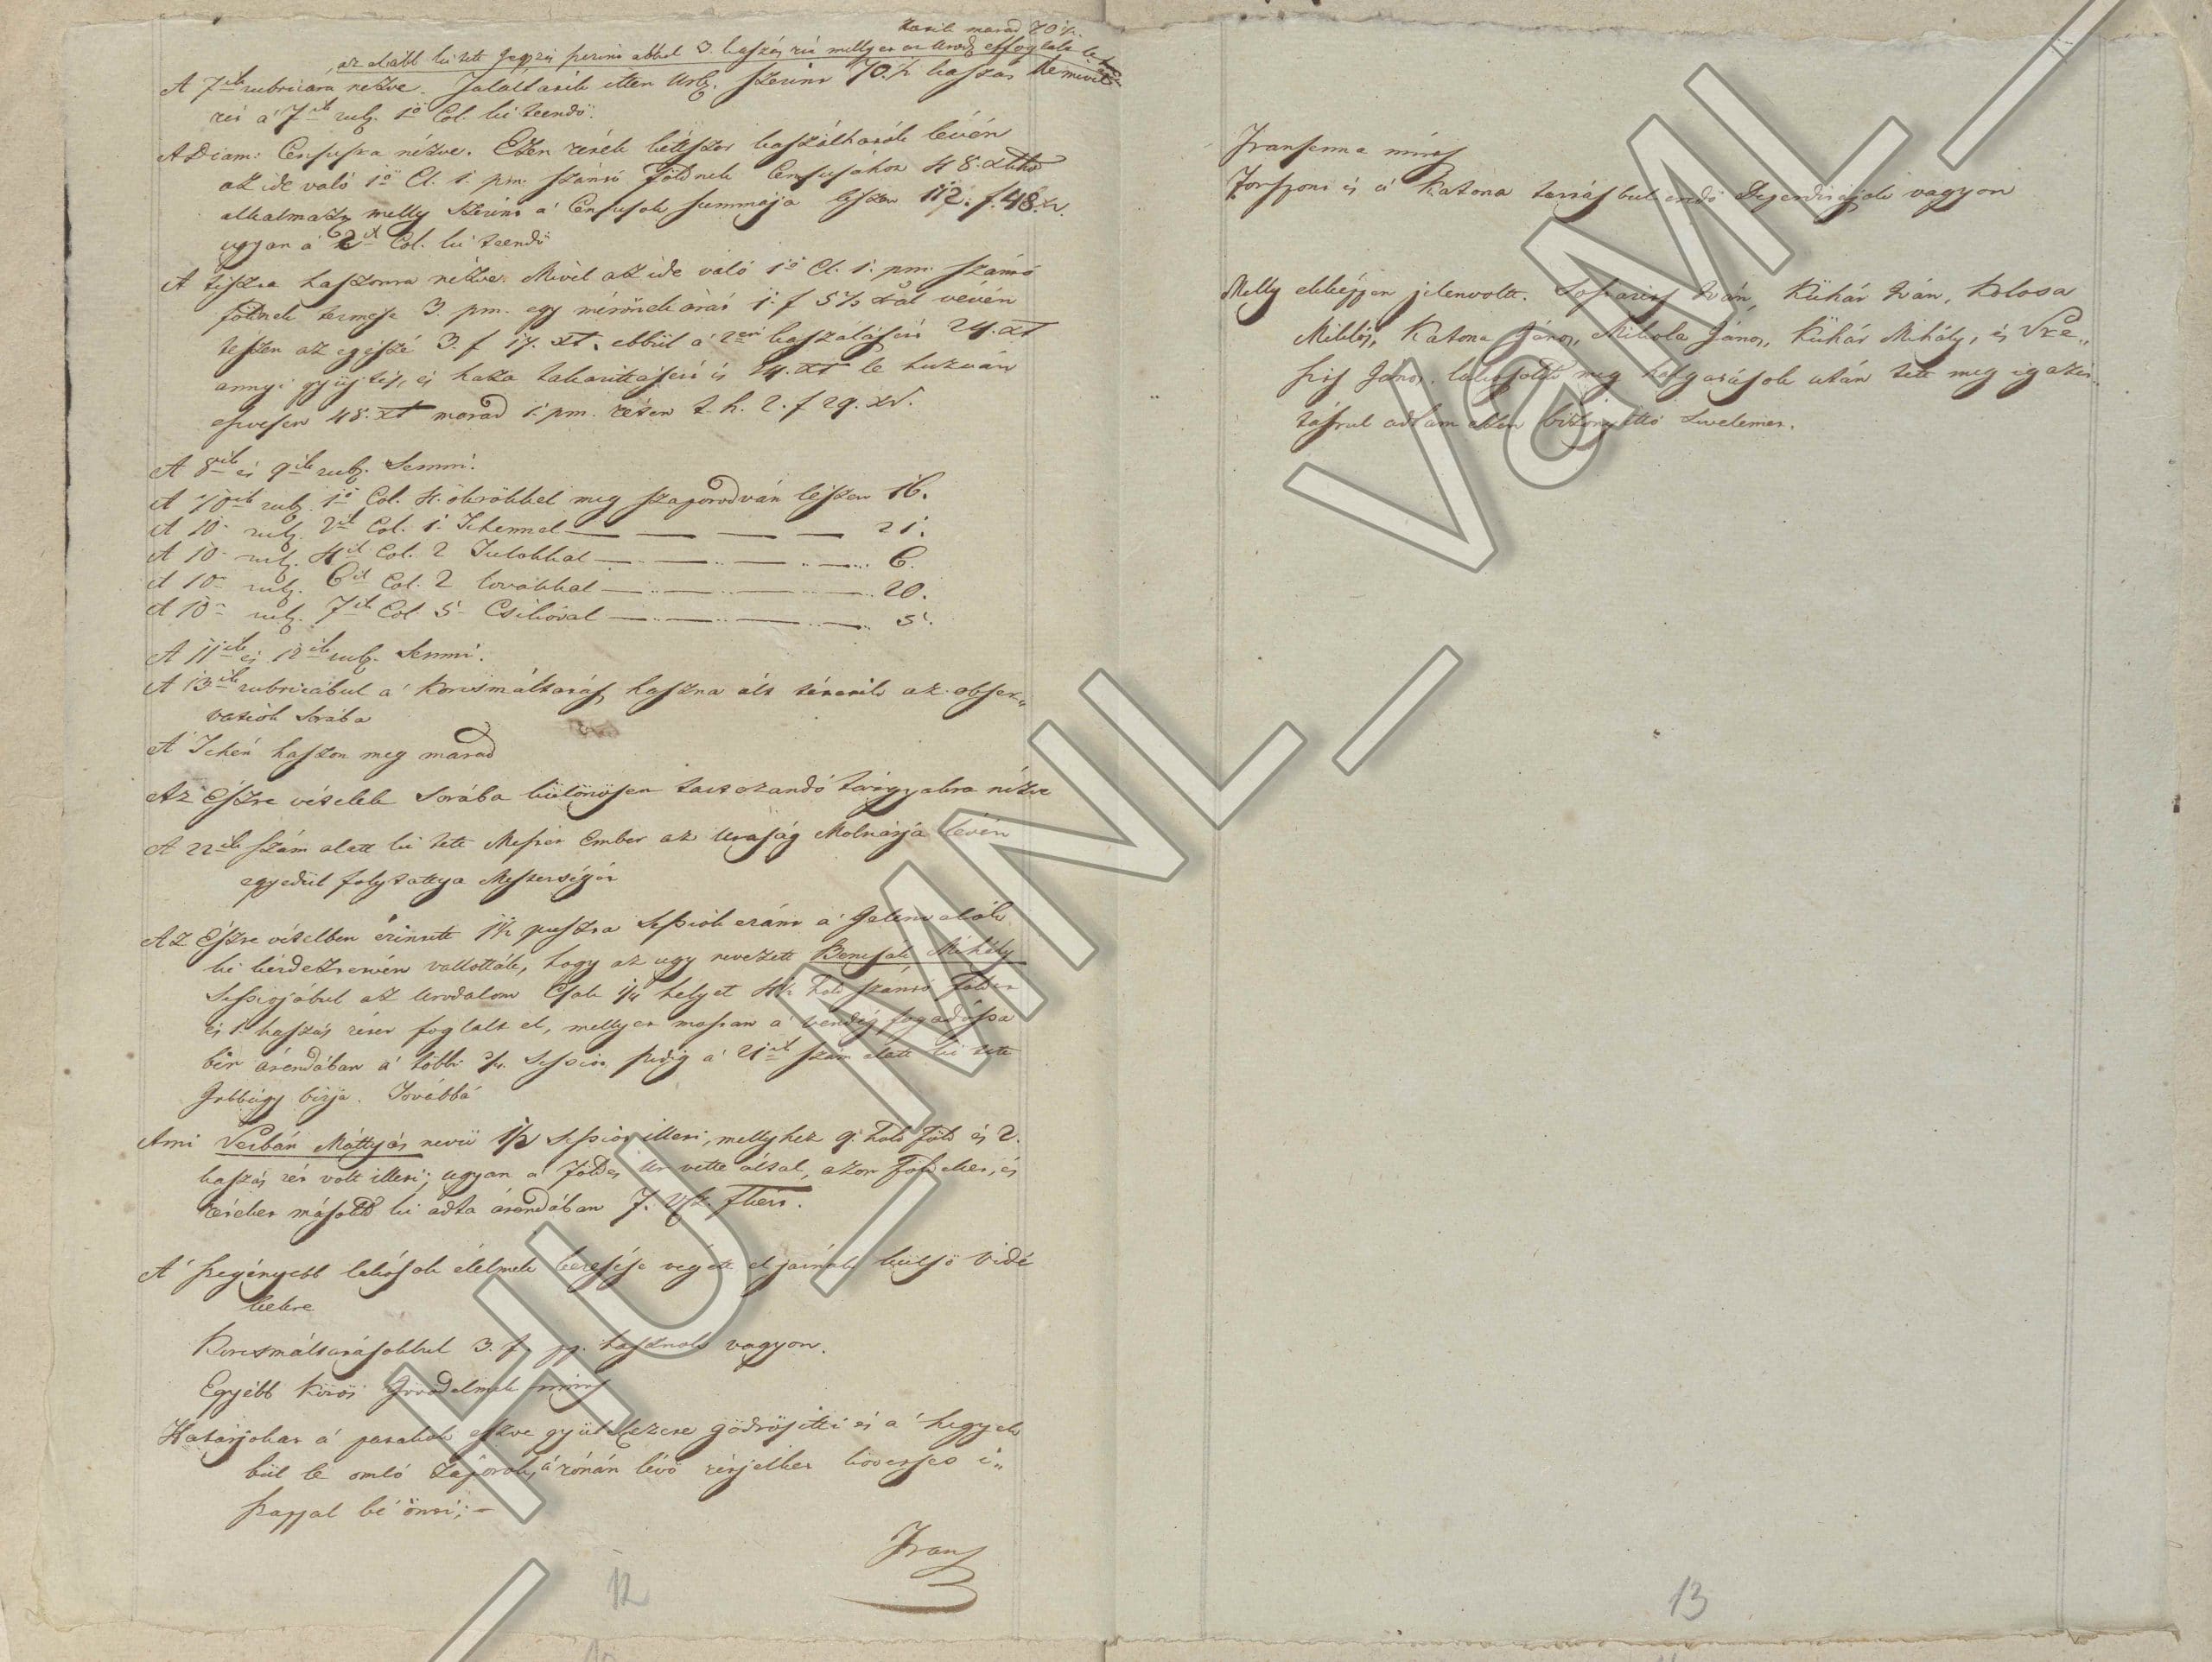 tarik marad 70½.
az alább ki tett Jegyzés szerint abbul 3. kaszás rét mellyet az Urod. elfoglalt le
A 7ik rubricara nézve. Találtatik itten Urb. szerint 70.½ kaszás
rét a' 7ik rub. 1ő Col. ki teendő.
A Dicam: Censusra nézve. Ezen rétek kétszer kaszálhatók lévén
az ide való 1ő Cl. 1. pm. szántó Földnek Censusához 48. xtkó
alkalmazt. melly szerint a' Censusok summája leszen 112. f. 48. xr.
ugyan a' 2ik Col. ki teendő
A tiszta haszonra nézve. Mivel az ide való 1ő Cl. 1. pm. szántó
földnek termése 3. pm. egy mérőnek árát 1. f 5⅔ xral vévén
teszen az egészé 3. f 17. xt. ebbül a' rét kaszálásért 24. xt
annyi gyűjtés, és haza takarittásért is 24. xt le huzván
eszvesen 48. xt marad 1. pm. réten t. h. 2. f 29. xr.
A 8ik és 9ik rub. Semmi.
A 10ik rub. 1ő Col. 4. ökrökkel meg szaporodván lészen 16.
A 10. rub. 2ik Col. 1. Tehennel — — — — 21.
A 10. rub. 4ik Col. 2 Tulokkal — — — — 6.
A 10. rub. 6ik Col. 2 lovakkal — — — — 20.
A 10. rub. 7ik Col. 5. Csikóval — — — — 5.
A 11ik és 12ik rub. Semmi.
A 13ik rubricábul a' Korcsmáltatás haszna ált tétetik az obser„
vatiók Sorába
A' Tehén haszon meg marad
Az Észre vételek Sorába különösen tartozandó tárgyakra nézve
A 22ik szám alatt ki tett Mester Ember az Uraság Molnárja lévén
egyedül folytattya Mesterségét
Az Észre vételben érintett 1½ puszta Sessiók eránt a' Jelenvalók
ki kérdeztetvén vallották, hogy az ugy nevezett Bencsák Mihály
Sessiojábul az Urodalom Csak ¼ helyet 4½ hold szántó Földet
és 1. kaszás rétet foglalt el, mellyet mostan a' vendég fogadóssa
bír árendában a' többi ¾. Sessiót pedig a' 21ik szám alatt ki tett
Jobbágy birja. Továbbá
Ami Verbán Máttyás nevü ½ Sessiót illeti, mellyhez 9. hold föld és 2.
kaszás rét volt illeti; ugyan a' Földes Ur vette által, azon Földeket, és
réteket másoknak ki adta árendában
A' szegényebb lakósok élelmek keresése végett el járnak külső vidé
kekre
Korcsmáltatásokbul 3. f. pp. hasznok vagyon.
Egyébb Közös Jövedelmek nincs
Határjokat a' patakok eszve gyülekezete gödrösitti és a' hegyek
bül le omló záporok, a' rónán lévő rétjeiket követses i„
szappal bé önti; –
Trans
12
Transenna nincs
Forspont és a' Katona tartásbul eredő Deperditájok vagyon
Melly eképpen jelenvoltt. Iván, Kühár Iván, Kolosa
Miklós, Katona János, Mikola János, Kühár Mihály, és Vre„
tsis János. lakosoktul meg halgatások után tett meg igazit„
tásrul adtam ezen bizonyittó Levelemet.
13
HU_MNL_VaML_